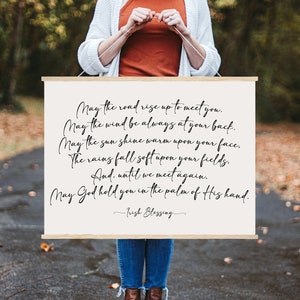 May the road rise up to meet you.
May the wind be always at your back.
May the sun shine warm upon your face,
The rains fall soft upon your fields.
And, until we meet again,
May God hold you in the palm of His hand.
Irish Blessing